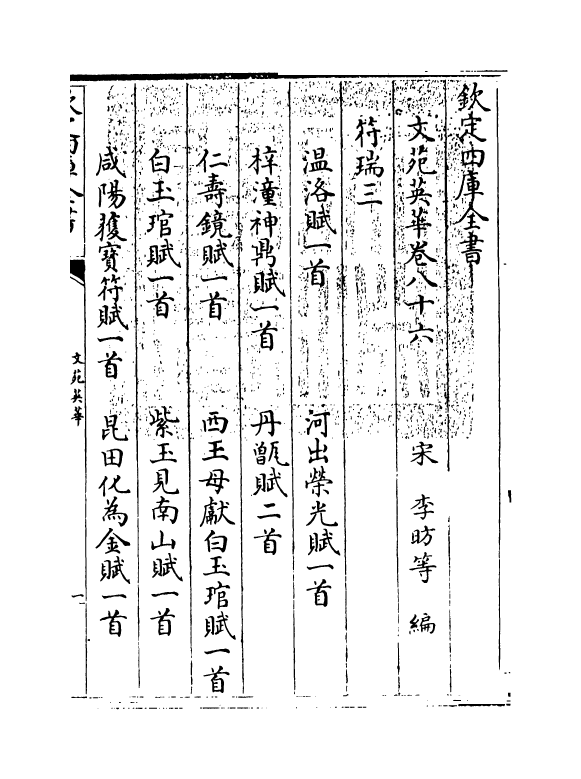 欽定四庫全書
文苑英華卷八十六
宋 李昉等 編
符瑞三
温洛賦一首 河出榮光賦一首
梓潼神鼎賦一首 丹甑賦二首
仁壽鏡賦一首 西王母獻白玉琯賦一首
白玉琯賦一首 紫玉見南山賦一首
咸陽獲寶符賦一首 昆田化為金賦一首
文苑英華
一